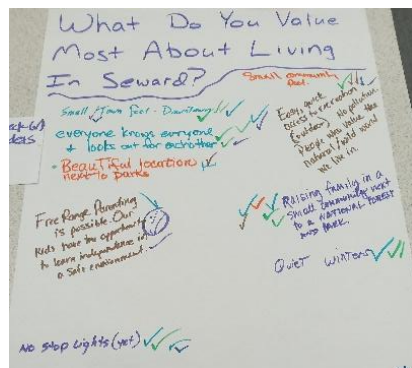 What Do You Value
Most About Living
In Seward?
Small community
feel.
Small Town feel - Downtown
everyone knows everyone
+ looks out for eachother
- BEAUTIFUL location
next to parks
Easy, quick
access to recreation
(outdoor) No pollution
People who value the
natural/wild world
we live in.
Free Range Parenting
is possible. Our
kids have the opportunity
to learn independence in
a safe environment.
Raising family in a
small community next
to a NATIONAL FOREST
AND PARK.
Quiet winters
No stop lights (yet)